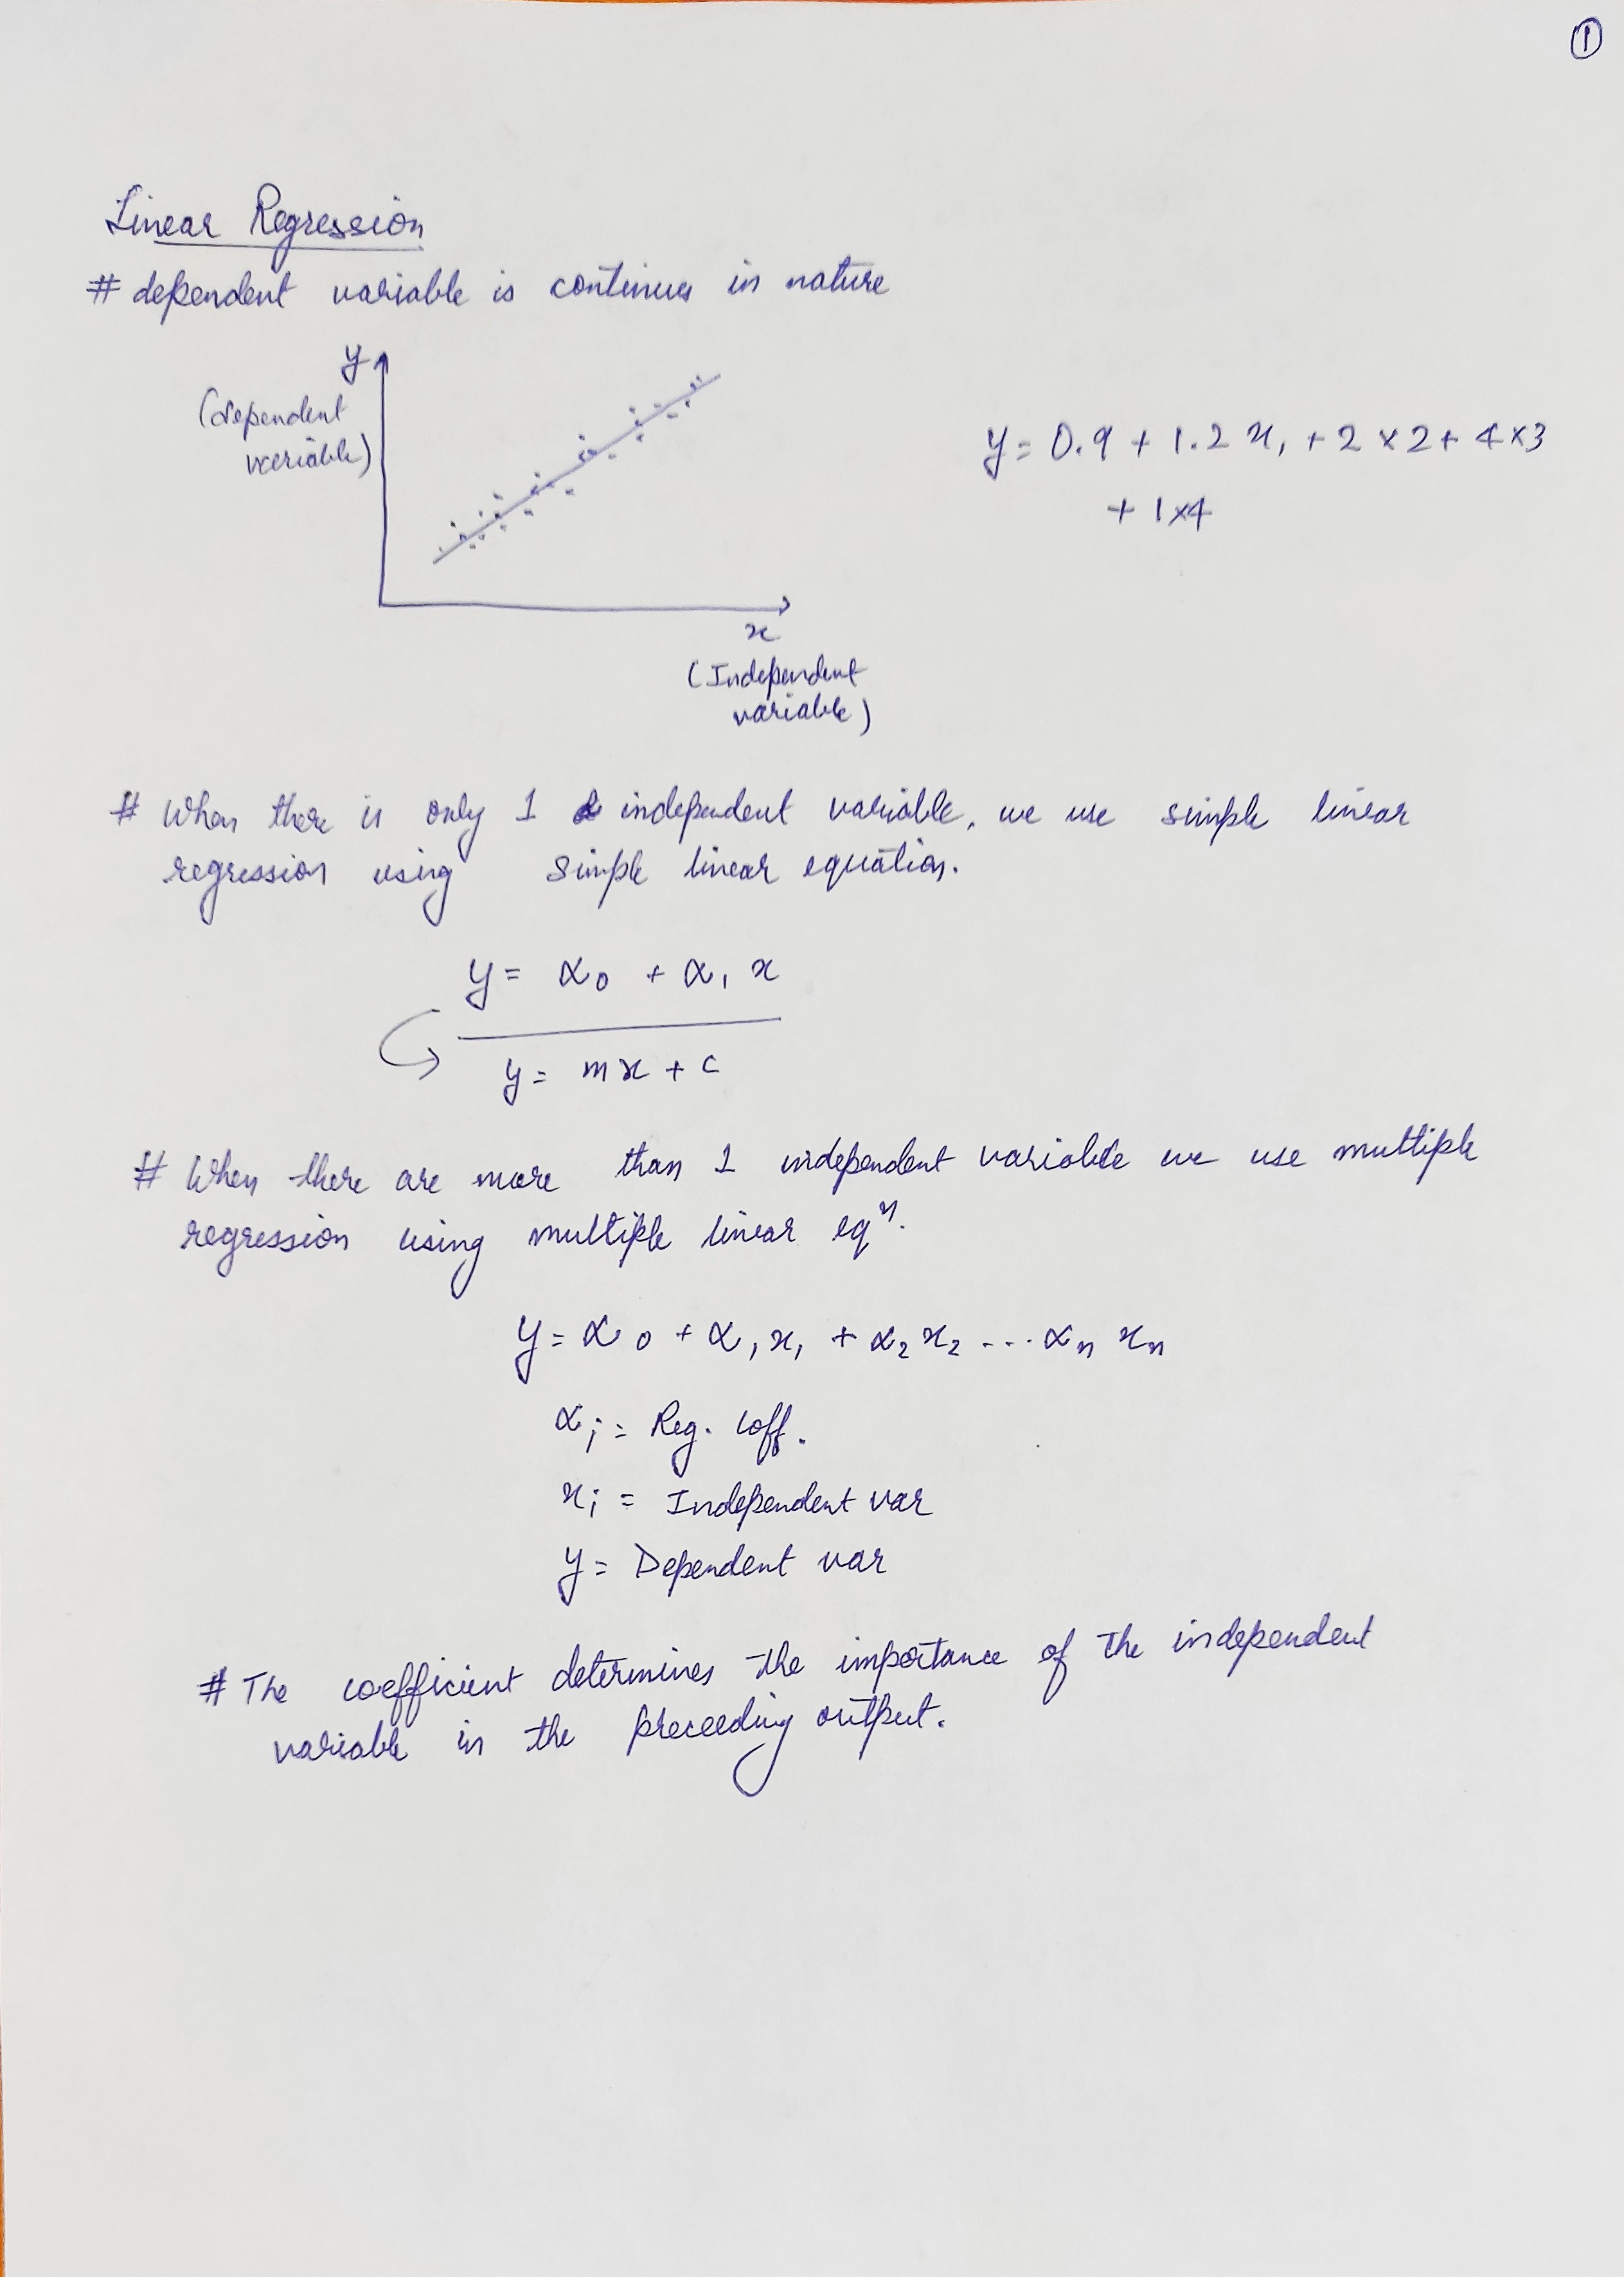 ①
Linear Regression
# dependent variable is continues in nature
y
(dependent
variable)
y = 0.9 + 1.2 x₁ + 2 x 2 + 4 x 3
+ 1 x 4
x
(Independent
variable)
# When there is only 1 independent variable, we use simple linear
regression using simple linear equation.
y = α₀ + α₁ x
y = mx + c
# When there are more than 1 independent variable we use multiple
regression using multiple linear eqⁿ.
y = α₀ + α₁x₁ + α₂x₂ ... αₙ xₙ
αᵢ = Reg. Coff.
xᵢ = Independent var
y = Dependent var
# The coefficient determines the importance of the independent
variable in the preceeding output.